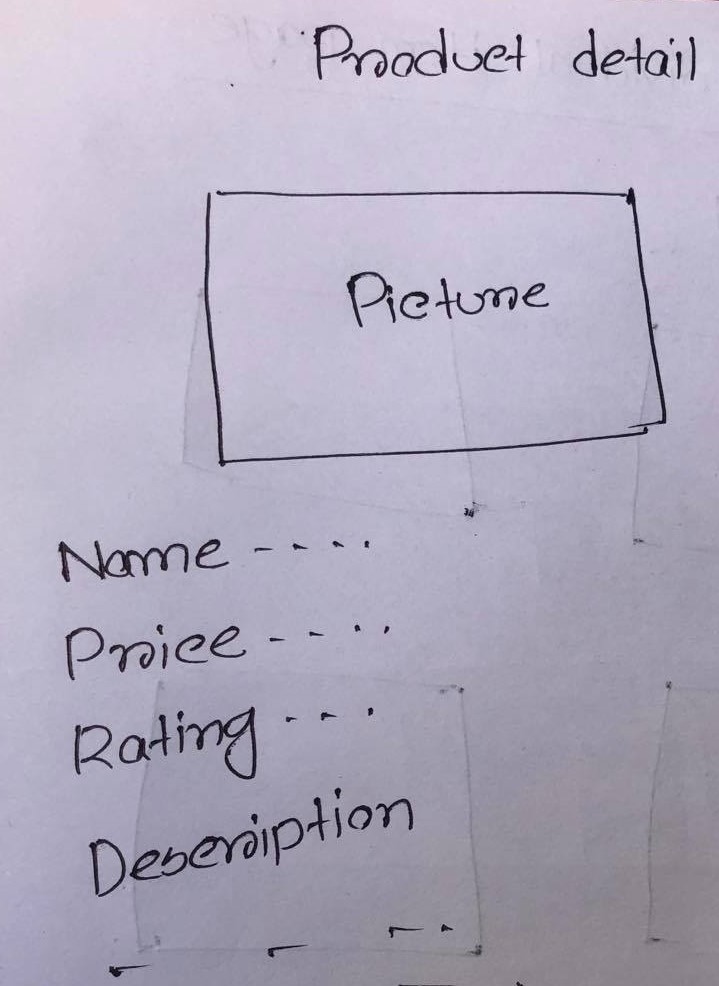 Product detail
Picture
Name ----
Price ----
Rating ---
Description